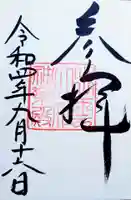 参拝
令和四年九月十六日